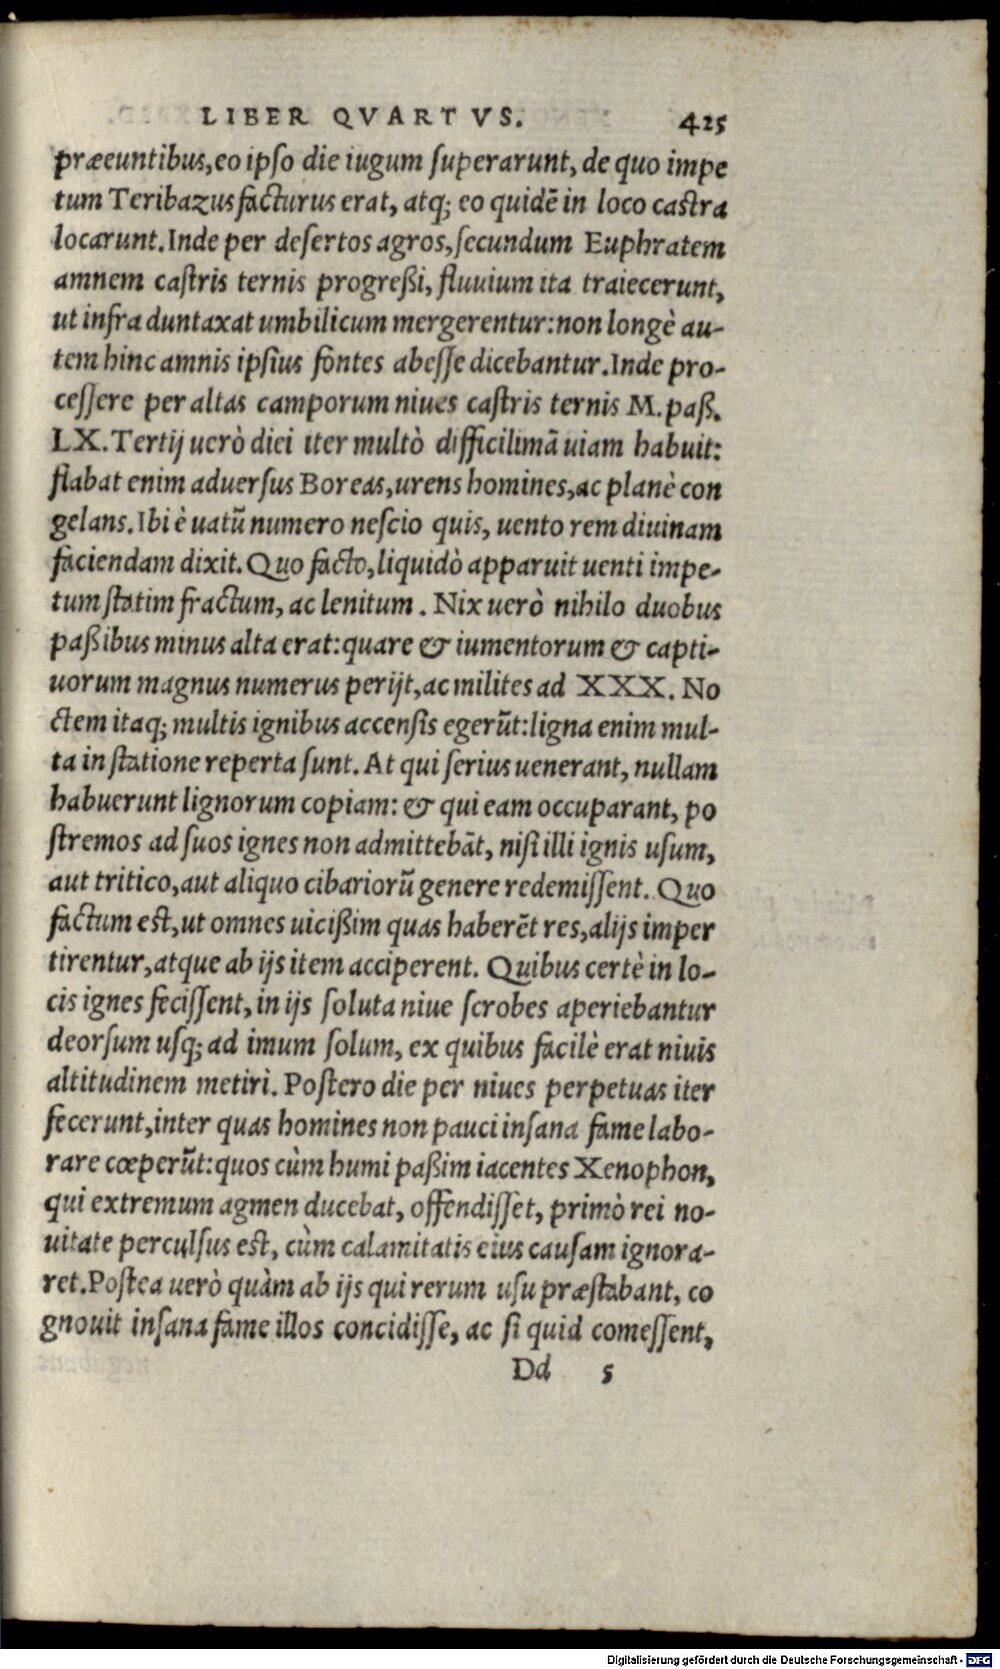 LIBER QVARTVS. 425
præeuntibus, eo ipso die iugum superarunt, de quo impe
tum Teribazus facturus erat, atq; eo quidē in loco castra
locarunt. Inde per desertos agros, secundum Euphratem
amnem castris ternis progreßi, fluuium ita traiecerunt,
ut infra duntaxat umbilicum mergerentur: non longè au-
tem hinc amnis ipsius fontes abesse dicebantur. Inde pro-
cessere per altas camporum niues castris ternis M. paß.
LX. Tertij uerò diei iter multò difficilimā uiam habuit:
flabat enim aduersus Boreas, urens homines, ac planè con
gelans. Ibi è uatū numero nescio quis, uento rem diuinam
faciendam dixit. Quo facto, liquidò apparuit uenti impe-
tum statim fractum, ac lenitum. Nix uerò nihilo duobus
paßibus minus alta erat: quare & iumentorum & capti-
uorum magnus numerus perijt, ac milites ad XXX. No
ctem itaq; multis ignibus accensis egerūt: ligna enim mul-
ta in statione reperta sunt. At qui serius uenerant, nullam
habuerunt lignorum copiam: & qui eam occuparant, po
stremos ad suos ignes non admittebāt, nisi illi ignis usum,
aut tritico, aut aliquo cibariorū genere redemissent. Quo
factum est, ut omnes uicißim quas haberēt res, alijs imper
tirentur, atque ab ijs item acciperent. Quibus certè in lo-
cis ignes fecissent, in ijs soluta niue scrobes aperiebantur
deorsum usq; ad imum solum, ex quibus facilè erat niuis
altitudinem metiri. Postero die per niues perpetuas iter
fecerunt, inter quas homines non pauci insana fame labo-
rare cœperūt: quos cùm humi paßim iacentes Xenophon,
qui extremum agmen ducebat, offendisset, primò rei no-
uitate perculsus est, cùm calamitatis eius causam ignora-
ret. Postea uerò quàm ab ijs qui rerum usu præstabant, co
gnouit insana fame illos concidisse, ac si quid comessent,
Dd 5
Digitalisierung gefördert durch die Deutsche Forschungsgemeinschaft - DFG